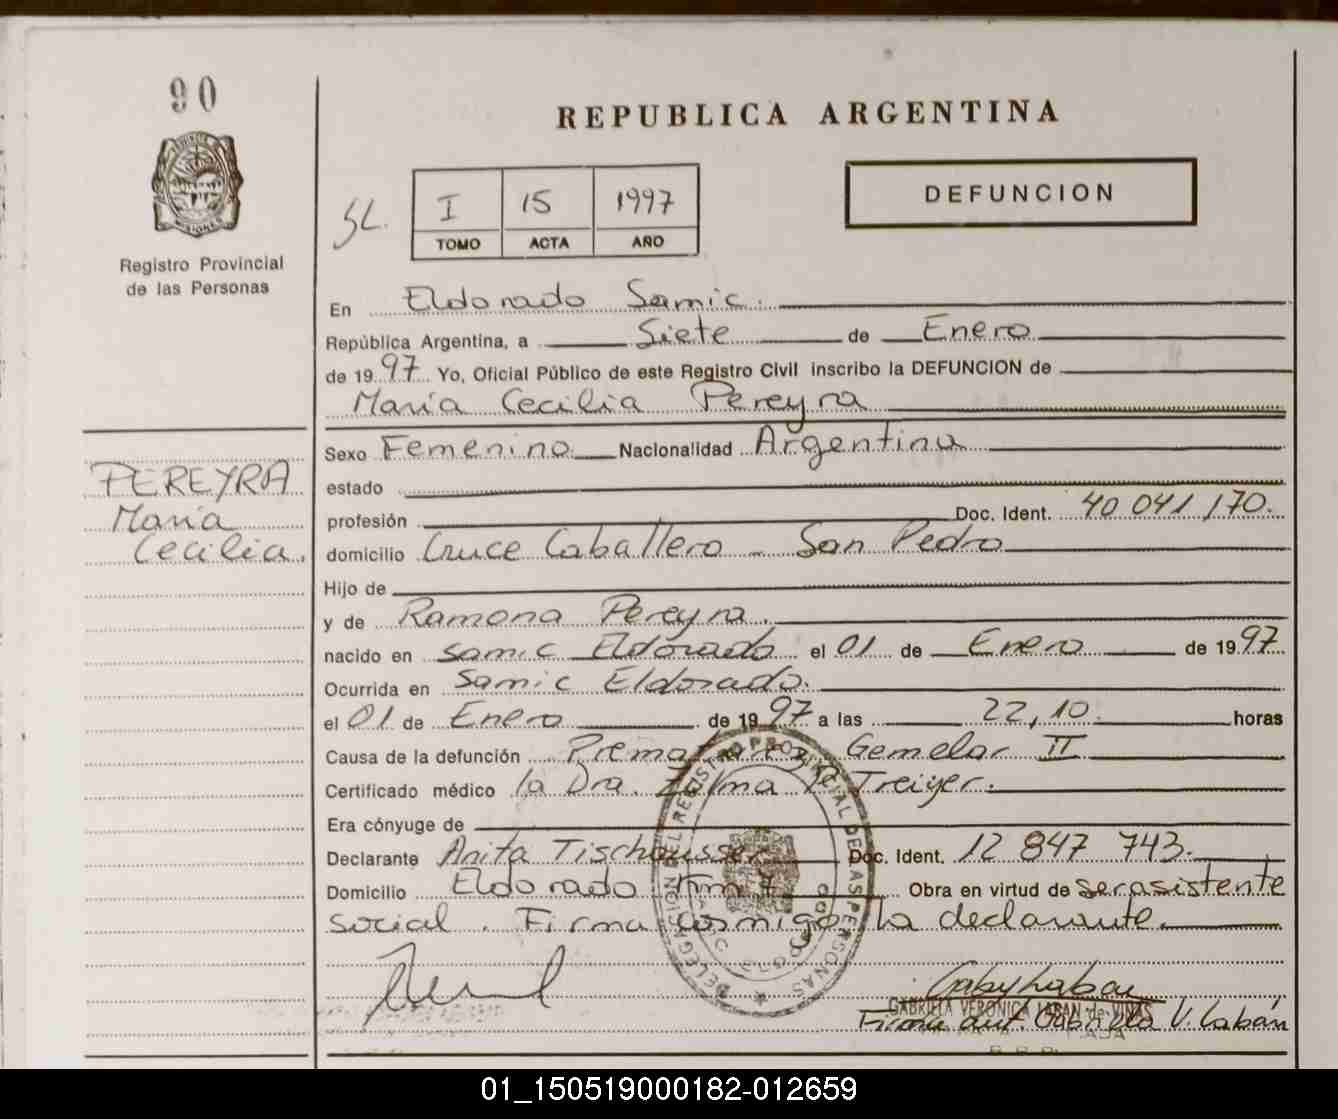 90
REPUBLICA ARGENTINA
DEFUNCION
SL.
I 15 1997
TOMO ACTA AÑO
MISIONES
Registro Provincial
de las Personas
En Eldorado Samic.
República Argentina, a Siete de Enero
de 1997 Yo, Oficial Público de este Registro Civil inscribo la DEFUNCION de
María Cecilia Pereyra
Sexo Femenino Nacionalidad Argentina
PEREYRA
María
Cecilia.
estado
profesión Doc. Ident. 40 041 170.
domicilio Cruce Caballero - San Pedro
Hijo de
y de Ramona Pereyra.
nacido en Samic Eldorado el 01 de Enero de 1997
Ocurrida en Samic Eldorado.
el 01 de Enero de 1997 a las 22,10. horas
Causa de la defunción Gemelar II
Certificado médico la Dra. Treiyer.
Era cónyuge de
Declarante Anita Tischausser Doc. Ident. 12 847 743.
Domicilio Eldorado Km 7 Obra en virtud de ser asistente
social. Firma conmigo la declarante.
DELEGACION DEL REGISTRO PROVINCIAL DE LAS PERSONAS
GABRIELA VERONICA LABAN de
Firma aut. Gabriela V. Labán
01_150519000182-012659